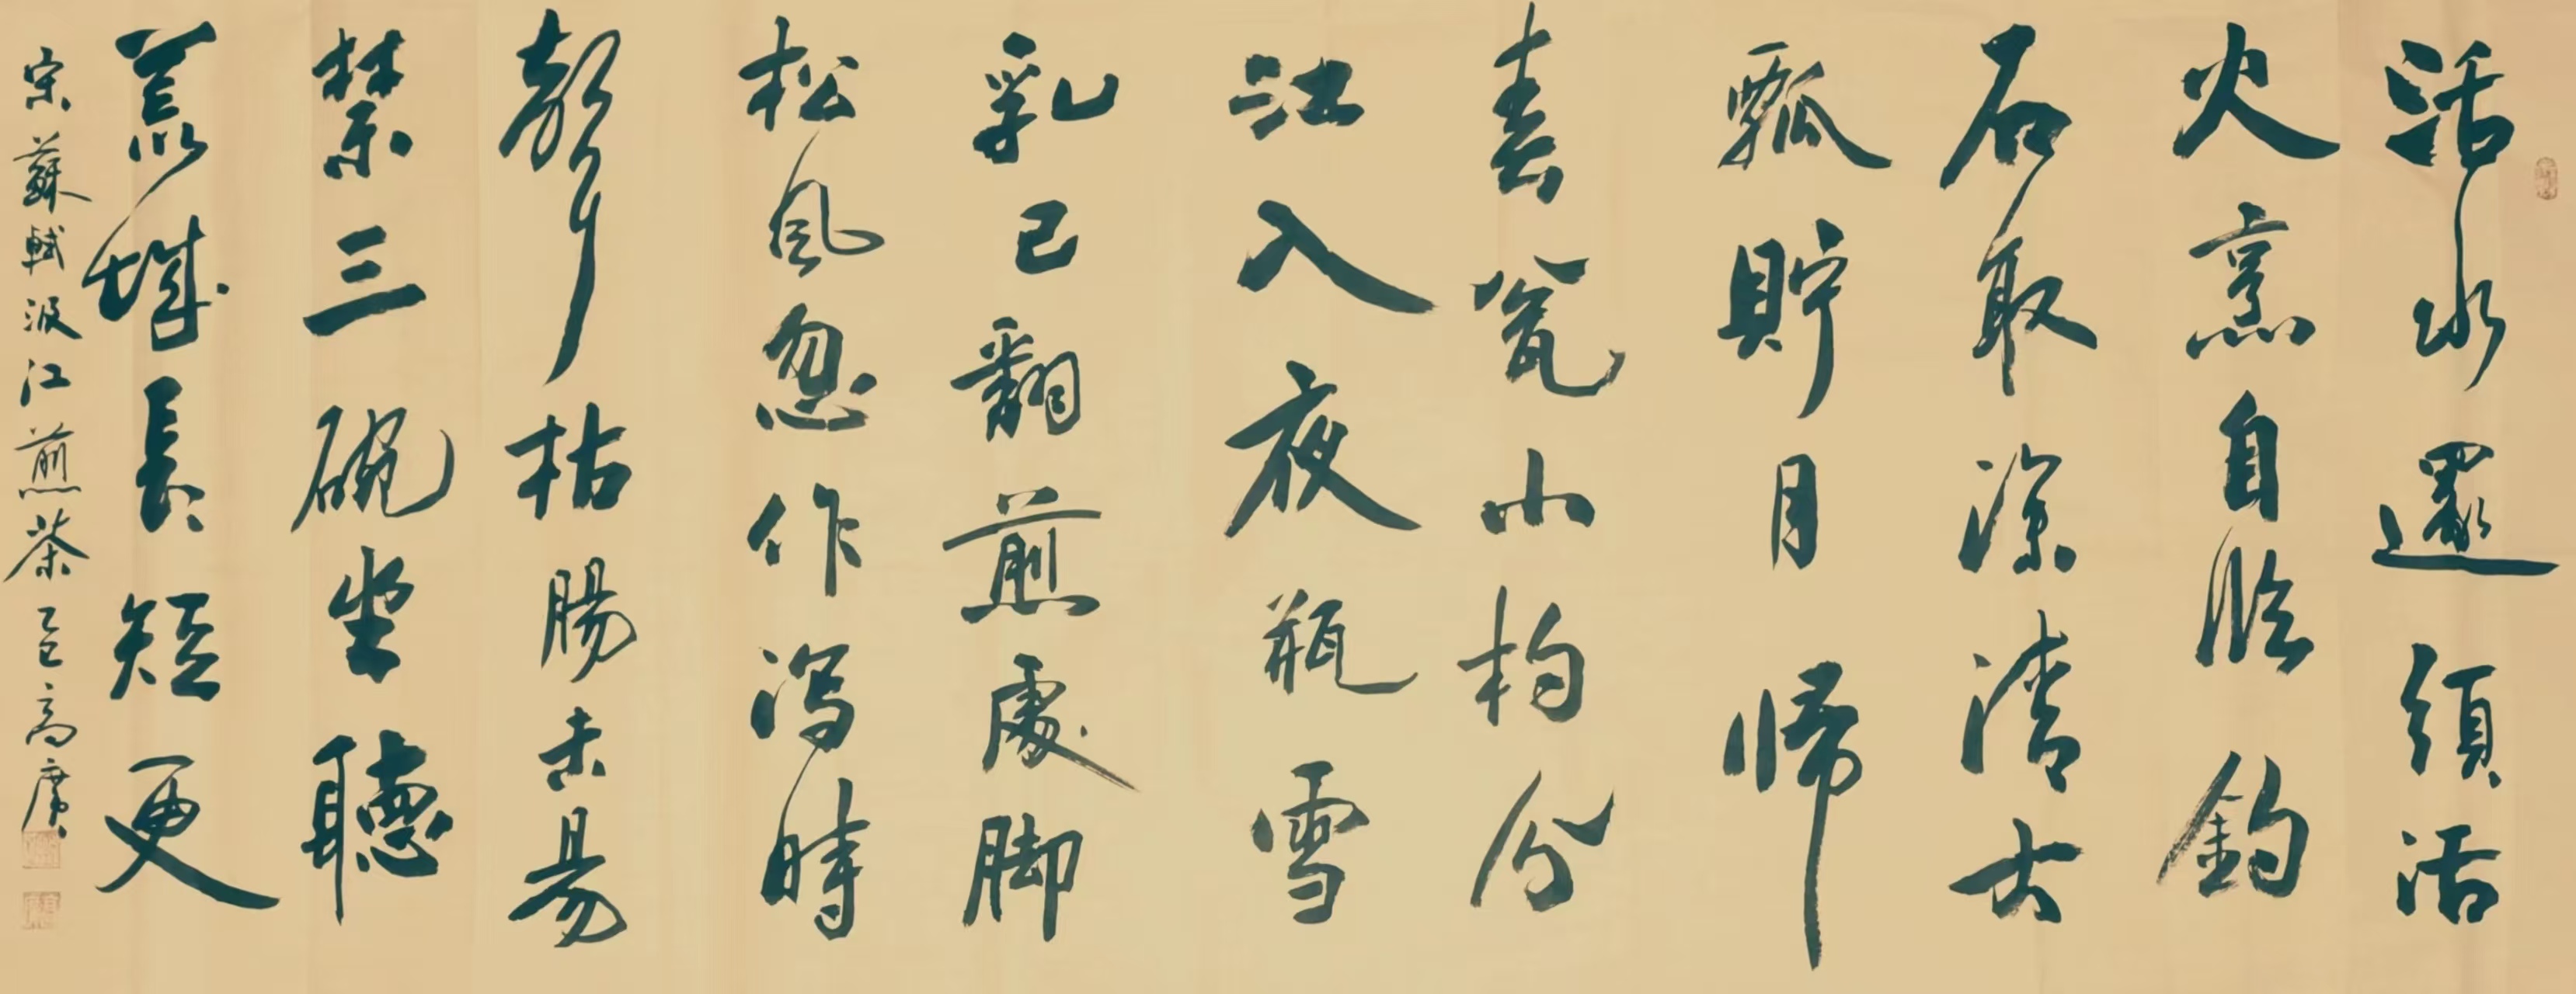 活水還須活
火烹自臨釣
石取深清大
瓢貯月歸
春瓮小杓分
江入夜瓶雪
乳已翻煎處脚
松風忽作瀉時
聲枯腸未易
禁三碗坐聽
荒城長短更
宋蘇軾汲江煎茶乙巳高